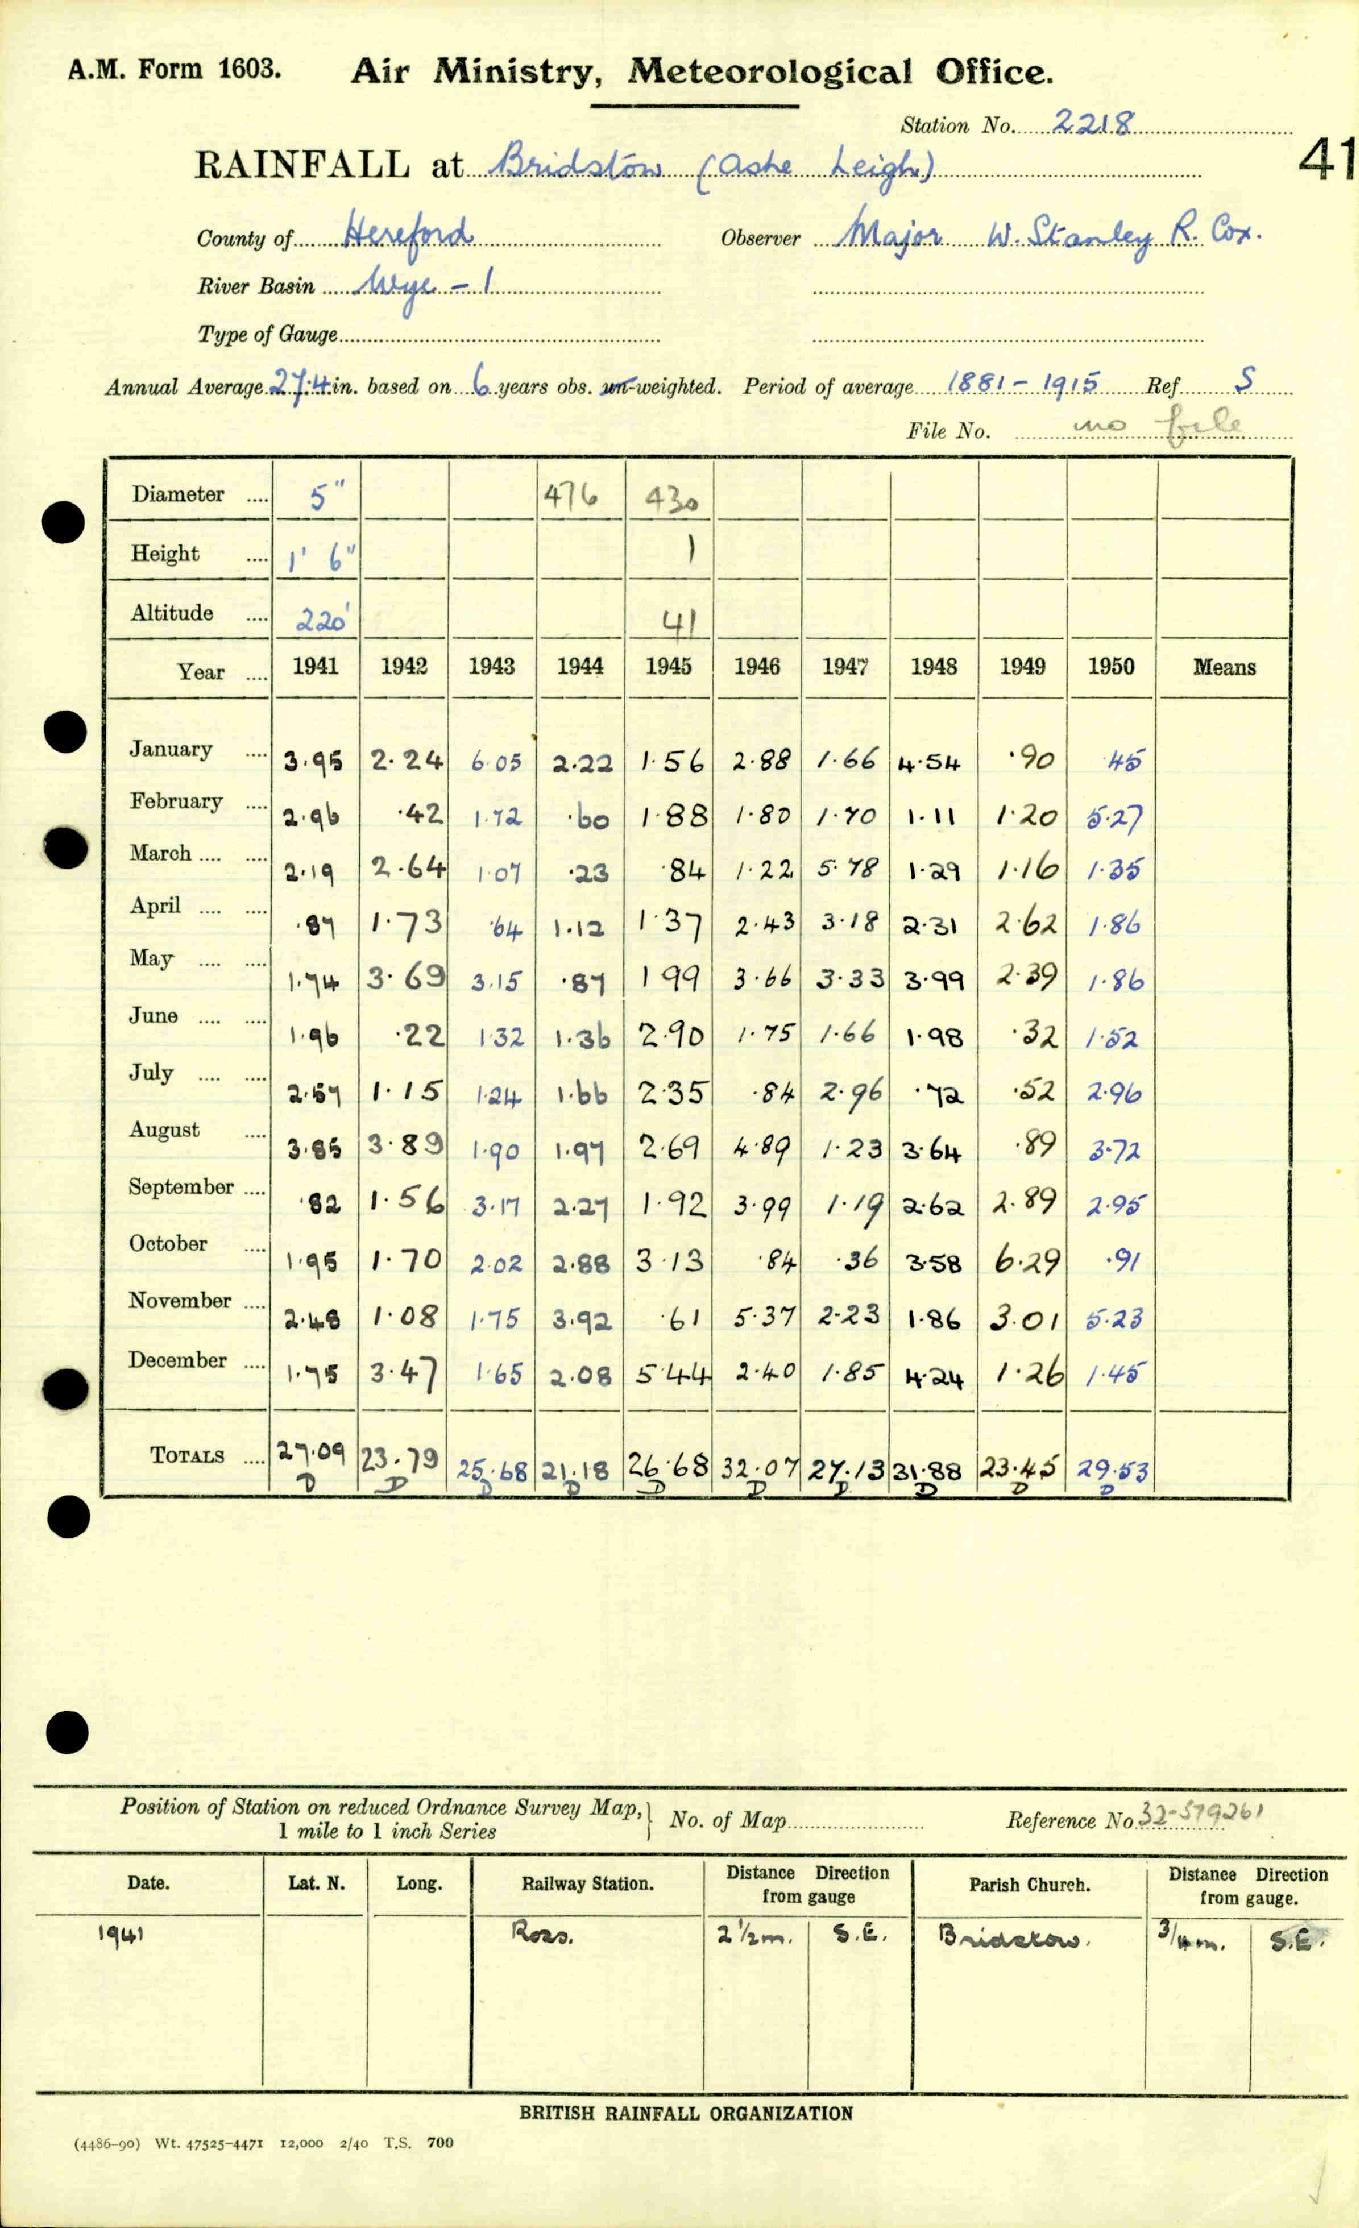 A.M. Form 1603. Air Ministry, Meteorological Office.
Station No. 2218
41
RAINFALL at Bridstow (Ashe Leigh)
County of Hereford Observer Major W. Stanley R. Cox.
River Basin Wye - 1
Type of Gauge
Annual Average 27.4 in. based on 6 years obs. un-weighted. Period of average 1881 - 1915 Ref. S
File No. no file
Diameter .... 5" 476 430
Height .... 1' 6" 1
Altitude .... 220' 41
Year .... 1941 1942 1943 1944 1945 1946 1947 1948 1949 1950 Means
January .... 3.95 2.24 6.05 2.22 1.56 2.88 1.66 4.54 .90 .45
February .... 2.96 .42 1.72 .60 1.88 1.80 1.70 1.11 1.20 5.27
March .... .... 2.19 2.64 1.07 .23 .84 1.22 5.78 1.29 1.16 1.35
April .... .... .87 1.73 .64 1.12 1.37 2.43 3.18 2.31 2.62 1.86
May .... .... 1.74 3.69 3.15 .87 1.99 3.66 3.33 3.99 2.39 1.86
June .... .... 1.96 .22 1.32 1.36 2.90 1.75 1.66 1.98 .32 1.52
July .... .... 2.57 1.15 1.24 1.66 2.35 .84 2.96 .72 .52 2.96
August .... 3.85 3.89 1.90 1.97 2.69 4.89 1.23 3.64 .89 3.72
September .... .82 1.56 3.17 2.27 1.92 3.99 1.19 2.62 2.89 2.95
October .... 1.95 1.70 2.02 2.88 3.13 .84 .36 3.58 6.29 .91
November .... 2.48 1.08 1.75 3.92 .61 5.37 2.23 1.86 3.01 5.23
December .... 1.75 3.47 1.65 2.08 5.44 2.40 1.85 4.24 1.26 1.45
TOTALS .... 27.09 23.79 25.68 21.18 26.68 32.07 27.13 31.88 23.45 29.53
D D D D D D D D D D
Position of Station on reduced Ordnance Survey Map, } No. of Map Reference No. 32-579261
1 mile to 1 inch Series
Date. Lat. N. Long. Railway Station. Distance Direction from gauge Parish Church. Distance Direction from gauge.
1941 Ross. 2 1/2 m. S.E. Bridstow. 3/4 m. S.E.
BRITISH RAINFALL ORGANIZATION
(4486-90) Wt. 47525-4471 12,000 2/40 T.S. 700